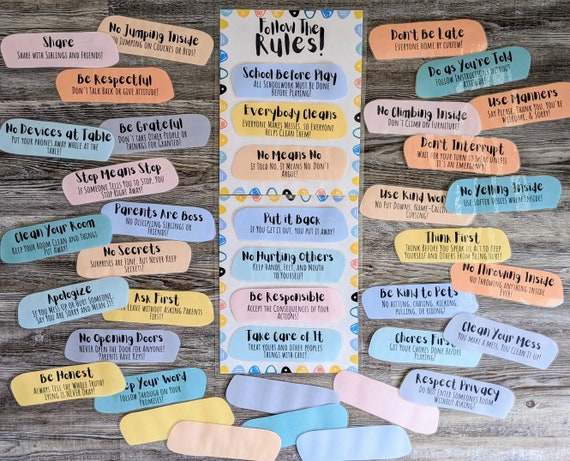 No Jumping Inside
No Jumping on Couches or Beds!
Share
Share with Siblings and Friends!
Be Respectful
Don't talk back or give attitude!
No Devices at Table
Put your phones away while at the
table!
Be Grateful
Don't take other people or
things for granted!
Stop Means Stop
If Someone Tells You to Stop, You
Stop Right Away!
Parents Are Boss
No Disciplining Siblings or
Friends!
Clean Your Room
Keep your room Clean and Things
Put Away!
No Secrets
Surprises are Fine, but Never Keep
Secrets!
Apologize
If you mess up or hurt someone,
Say you are Sorry and mean it!
Ask First
Leave without Asking Parents
First!
No Opening Doors
Never Open the Door for Anyone!
Parents have Keys!
Be Honest
Always tell the Whole Truth!
Lying is Never Okay!
Your Word
Follow Through on Your
Promises!
Follow The
Rules!
School Before Play
All Schoolwork Must be Done
Before Playing!
Everybody Cleans
Everyone Makes Messes, so Everyone
Helps Clean Them!
No Means No
If Told No, It Means No. Don't
Argue!
Put it Back
If You Get it Out, You Put it Away!
No Hurting Others
Keep Hands, Feet, and Mouth
to Yourself!
Be Responsible
Accept the Consequences of Your
Actions!
Take Care of It
Treat Yours and Other Peoples
Things with Care!
Don't Be Late
Everyone Home by Curfew!
Do as You're Told
Follow Instructions Without
Attitude!
Use Manners
Say Please, Thank You, You're
Welcome, & Sorry!
No Climbing Inside
Don't Climb on Furniture!
Don't Interrupt
Wait for Your Turn to Speak Unless
it's an Emergency!
Use Kind
No Put Downs, Name-Calling,
No Yelling Inside
Use Softer Voices When Inside!
Think First
Think Before You Speak or Act to Keep
Yourself and Others from Being Hurt!
No Throwing Inside
No Throwing Anything Inside
Ever!
Be Kind to Pets
No Hitting, Chasing, Kicking,
Pulling, or Riding!
Clean Your Mess
You Make a Mess, You Clean It Up!
Chores First
Get Your Chores Done Before
Playing!
Respect Privacy
Do Not Enter Someones Room
Without Asking!